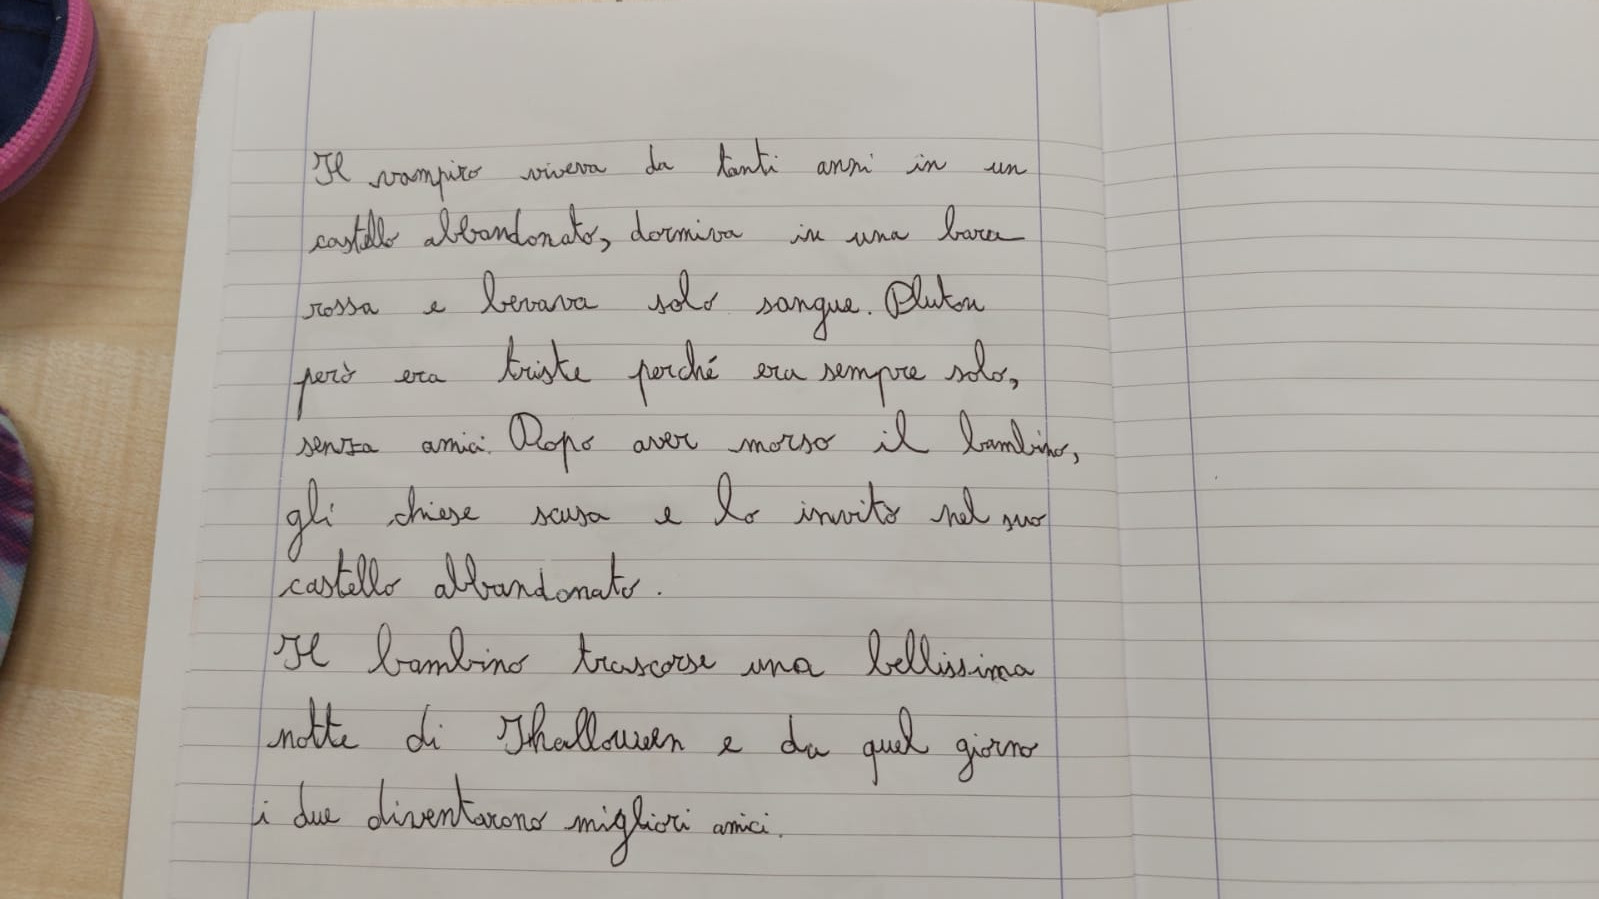 Il vampiro viveva da tanti anni in un
castello abbandonato, dormiva in una bara
rossa e bevava solo sangue. Pluton
però era triste perché era sempre solo,
senza amici. Dopo aver morso il bambino,
gli chiese scusa e lo invitò nel suo
castello abbandonato.
Il bambino trascorse una bellissima
notte di Hallouwen e da quel giorno
i due diventarono migliori amici.